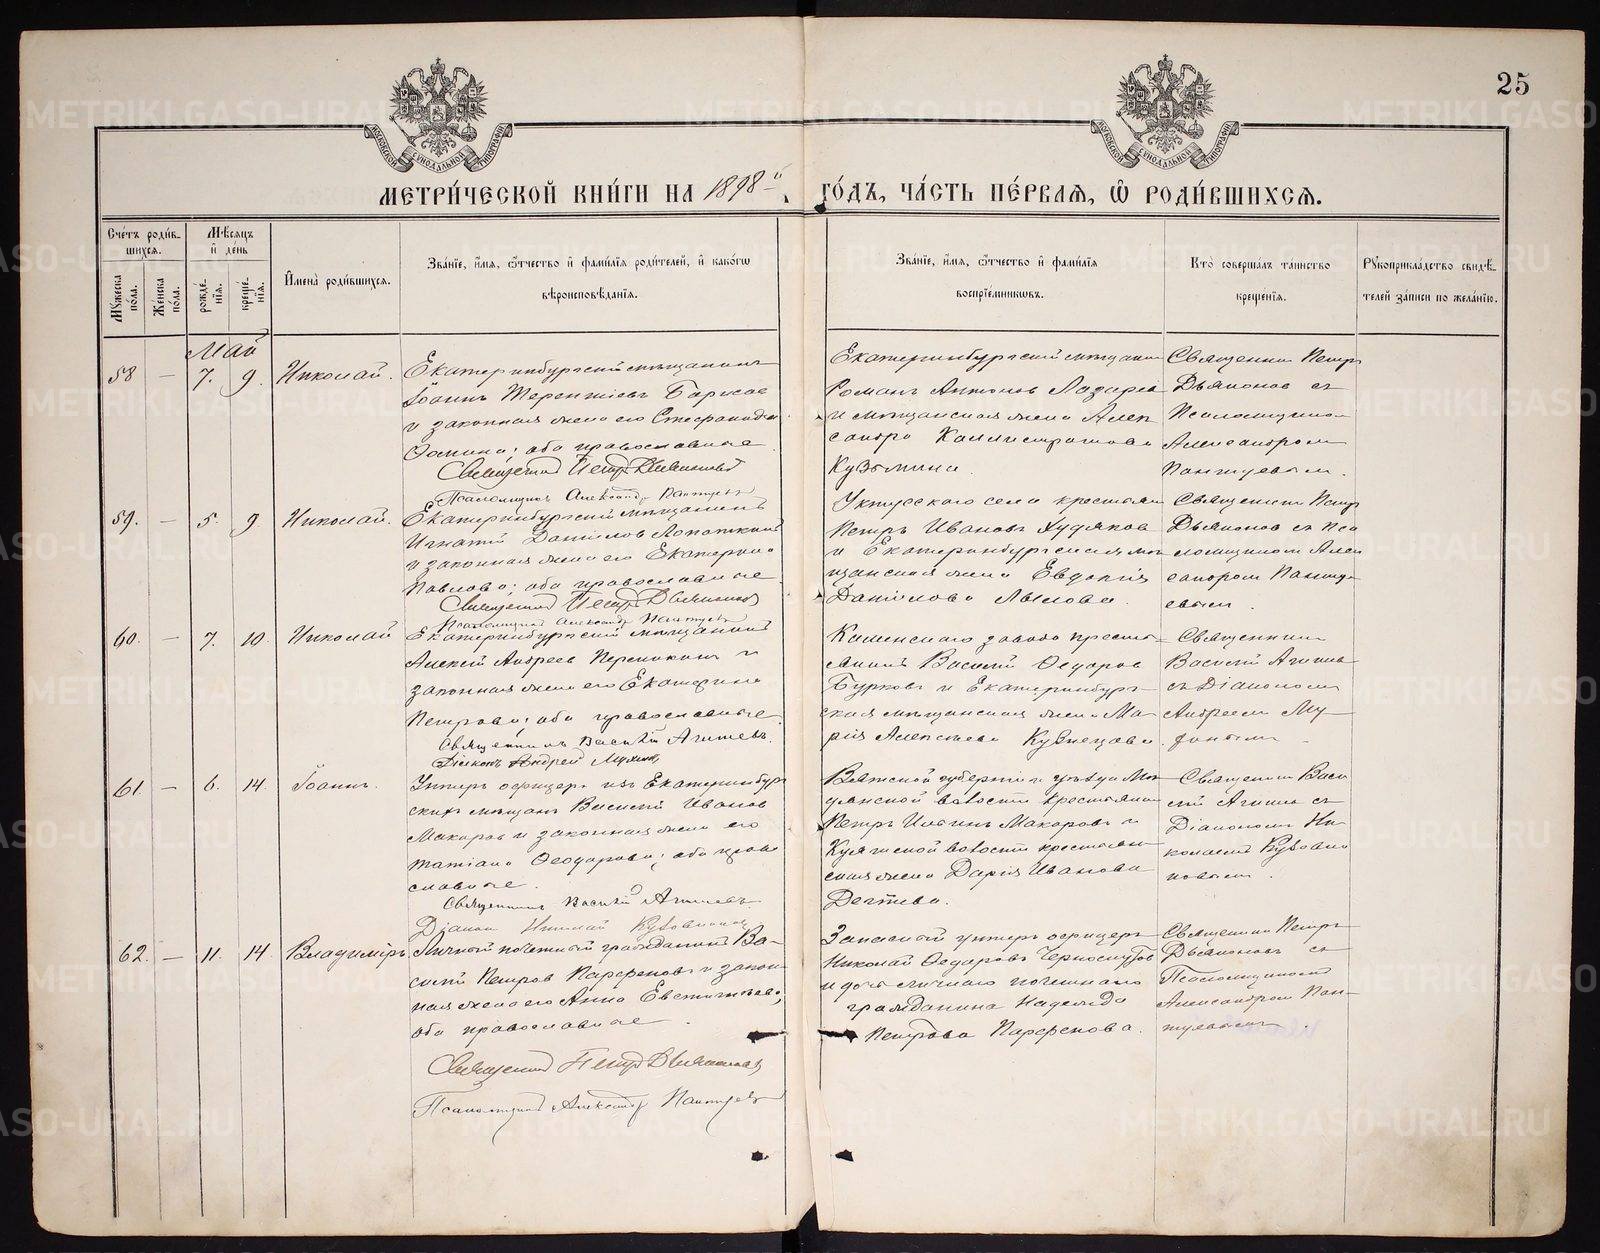 25
МОСКОВСКОЙ СѴНОДАЛЬНОЙ ТИПОГРАФІИ
МОСКОВСКОЙ СѴНОДАЛЬНОЙ ТИПОГРАФІИ
МЕТРИ́ЧЕСКОЙ КНИ́ГИ НА 1898 ГО́ДЪ, ЧА́СТЬ ПЕ́РВАѦ, Ѿ РОДИ́ВШИХСѦ.
Сче́тъ роди́вшихсѧ.
Мꙋ́жеска по́ла.
Же́нска по́ла.
Мѣ́сѧцъ и҆ де́нь
рожде́нїѧ.
креще́нїѧ.
И҆мена̀ роди́вшихсѧ.
Зва́нїе, и҆́мѧ, ѻ҆́тчество и҆ фами́лїѧ роди́телей, и҆ како́гѡ
вѣроисповѣ́данїѧ.
Зва́нїе, и҆́мѧ, ѻ҆́тчество и҆ фами́лїѧ
воспрїе́мникѡвъ.
Кто̀ соверша́лъ та́инство
креще́нїѧ.
Рꙋкоприкла́дство свидѣ́-
телей за́писи по жела́нїю.
Май
58 — 7. 9. Николай.
Екатеринбургскій мѣщанинъ
Іоаннъ Терентіевъ
и законная жена его Стефанида
Ѳомина; оба православные
Священникъ Петр Дьяконовъ
Псаломщикъ Александръ Пантуевъ
Екатеринбургскій мѣщанин
Романъ Антонов Лазарев
и мѣщанская жена Алек
сандра Каллистратова
Кузьмина.
Священник Петръ
Дьяконов съ
Псаломщиком
Александром
Пантуевым.
59. — 5. 9 Николай.
Екатеринбургскій мѣщанинъ
Игнатій Данилов Лопаткин
и законная жена его Екатерина
Павлова; оба православные
Священникъ Петръ Дьяконовъ
Псаломщикъ Александр Пантуевъ
Уктусскаго села крестьянин
Петръ Иванов Худяков
и Екатеринбургская мѣ
щанская жена Евдокія
Данилова
Священник Петр
Дьяконов съ Пса
ломщиком Алек
сандром Панту
евым.
60. — 7. 10. Николай
Екатеринбургскій мѣщанинъ
Алексій Андреев и
законная жена его Екатерина
Петрова; оба православные.
Священникъ Василій Агишевъ.
Діаконъ Андрей
Каменскаго завода кресть-
янинъ Василій Ѳедоров
Бурков и Екатеринбург-
ская мѣщанская жена Ма-
рія Алексѣева Кузнецова.
Священник
Василій Агишев
съ Діаконом
Андреем
61 — 6. 14. Іоанн.
Унтеръ офицеръ изъ Екатеринбург
ских мѣщан Василій Иванов
Макаров и законная жена его
Татіана Ѳеодорова; оба право
славные.
Священникъ Василій Агишевъ
Діакон Николай
Вятской губерніи и уѣзда
волости крестьянин
Петръ Макаровъ и
волости крестьян
ская жена Дарія Иванова
Священник Васи
лій Агишев съ
Діаконом Ни-
колаем
62. — 11. 14. Владиміръ
Личный почетный гражданинъ Ва-
силій Петров Парфенов и закон
ная жена его Анна Евстигнѣева;
оба православные.
Священникъ Петръ Дьяконовъ
Псаломщикъ Александръ Пантуевъ
Запасный унтеръ офицеръ
Николай Ѳедоровъ
и дочь личнаго почетнаго
гражданина Надежда
Петрова Парфенова.
Священник Петръ
Дьяконовъ съ
Псаломщиком
Александром Пан-
туевым.